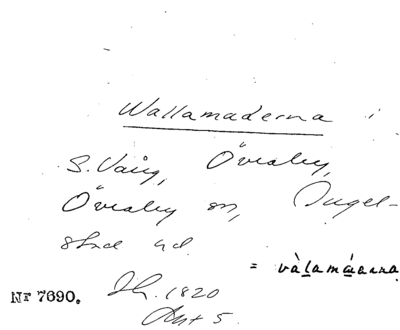 Wallamaderna i
S. Vång, Överby,
Överby sn, Ingel-
stad hd
= vàlamáarna
Nr 7690. Jh. 1820
Akt 5.